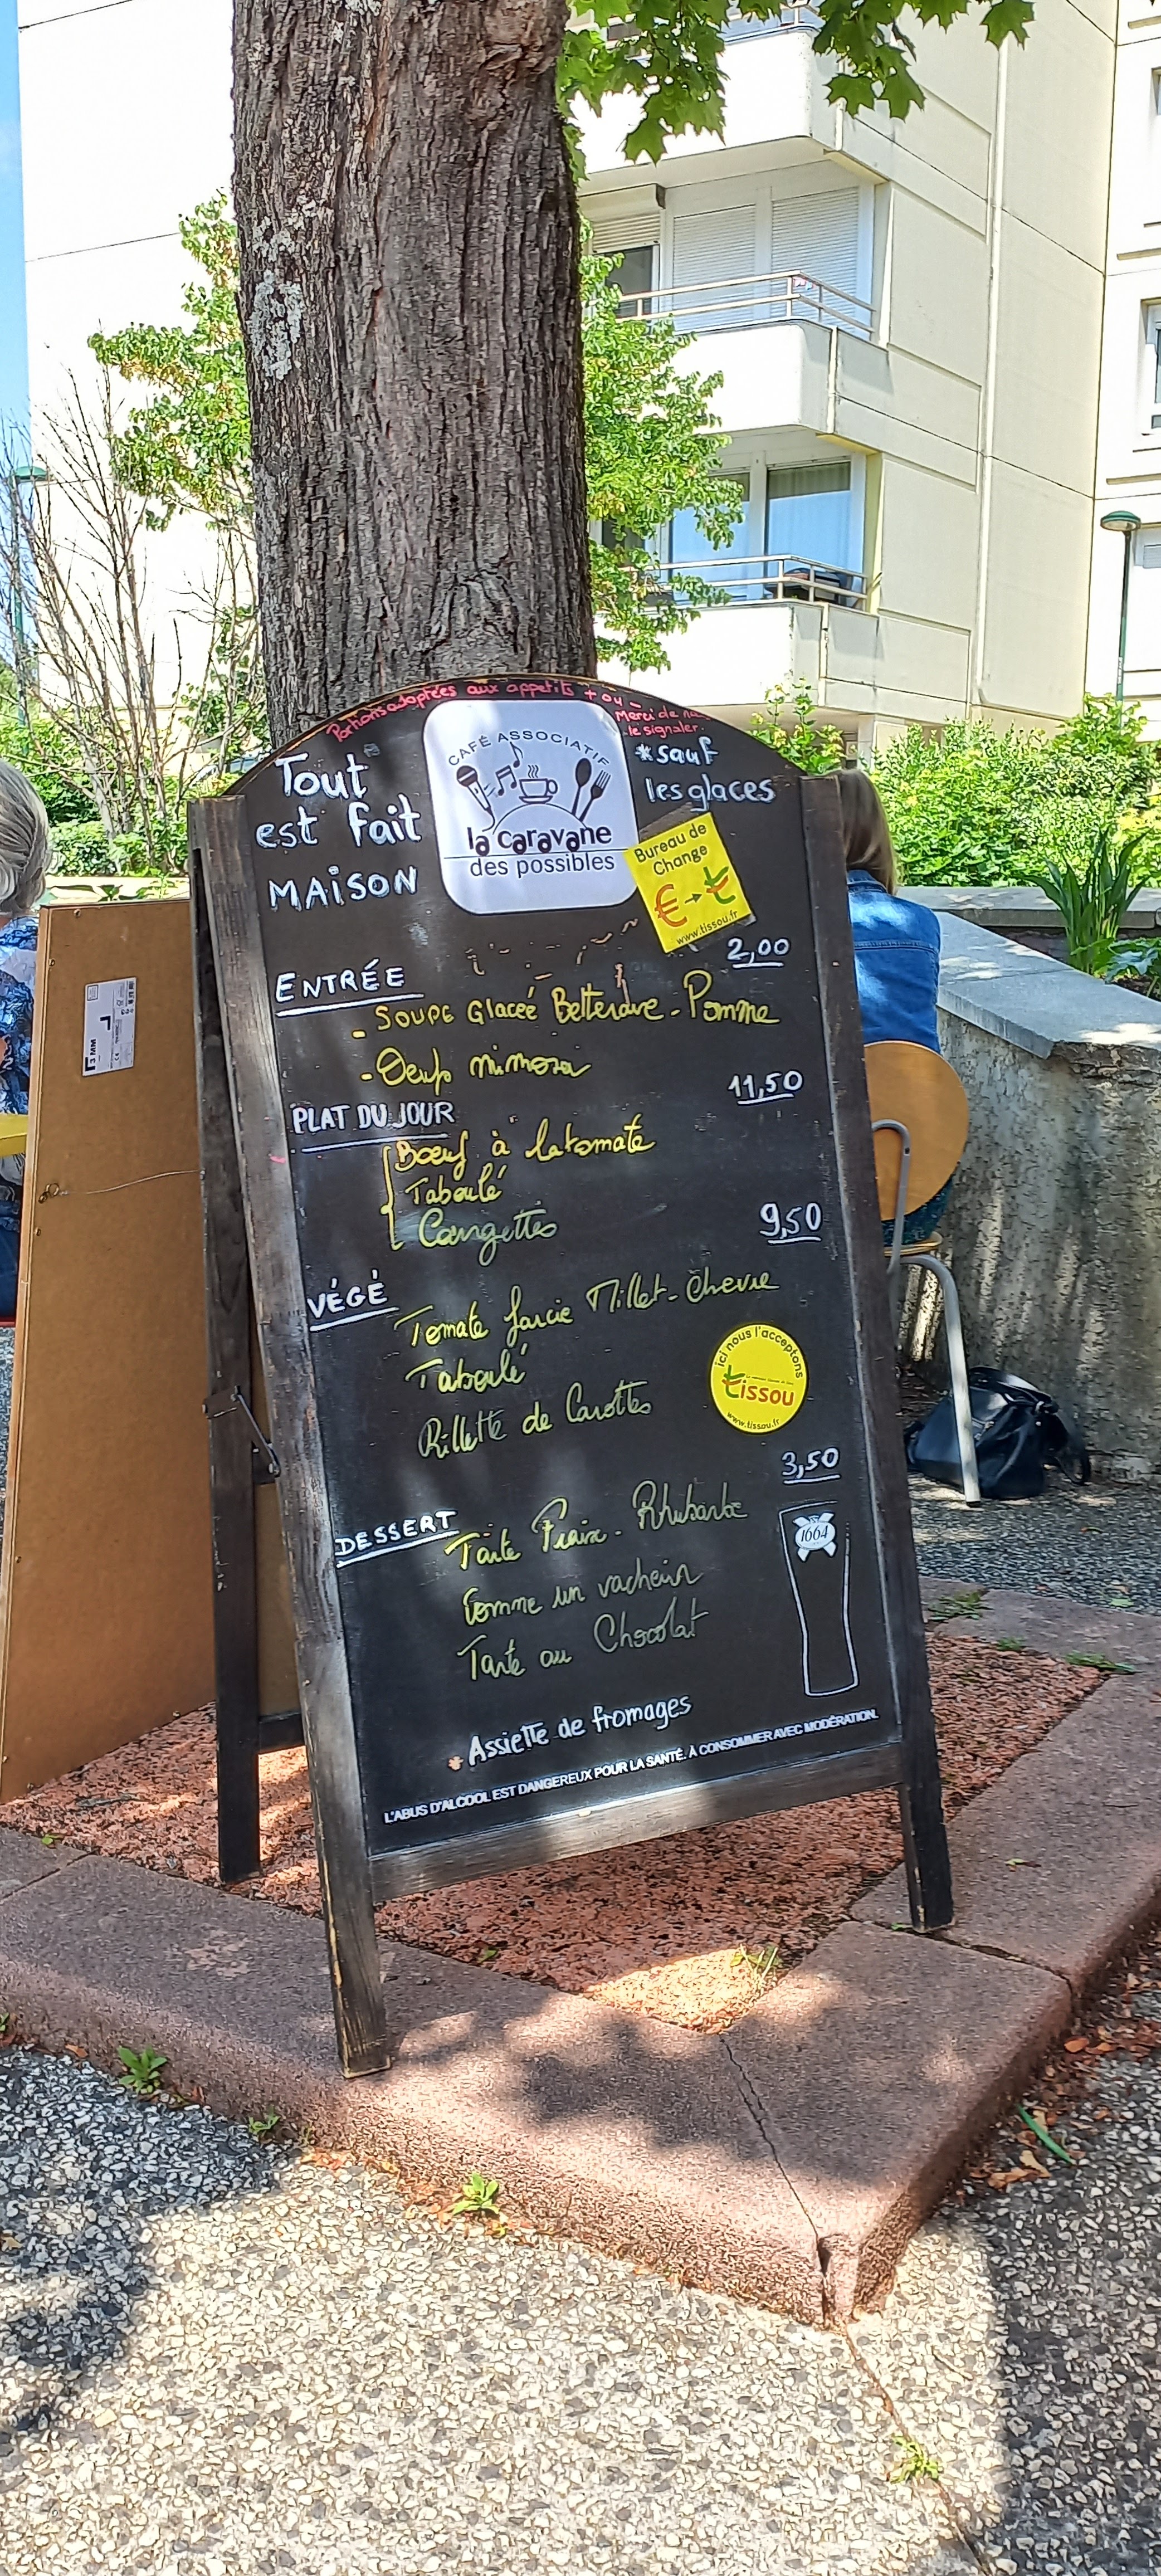 Portions adaptées aux appetits + ou -
Merci de
le signaler.
Tout
est fait
MAISON
CAFÉ ASSOCIATIF
la caravane
des possibles
*sauf
les glaces
Bureau de
Change
€→t
www.tissou.fr
2,00
ENTRÉE
- SOUPE Glacéé Betterave - Pomme
- Oeufs mimosa
11,50
PLAT DU JOUR
Boeuf à la tomate
Taboulé
Courgettes
9,50
VÉGÉ
Tomate farcie Millet - Chevre
Taboulé
Rillette de Carottes
ici nous l'acceptons
tissou
www.tissou.fr
3,50
DESSERT
Tarte Fraise - Rhubarbe
Comme un vacherin
Tarte au Chocolat
1664
* Assiette de fromages
L'ABUS D'ALCOOL EST DANGEREUX POUR LA SANTÉ. À CONSOMMER AVEC MODÉRATION.
3 MM